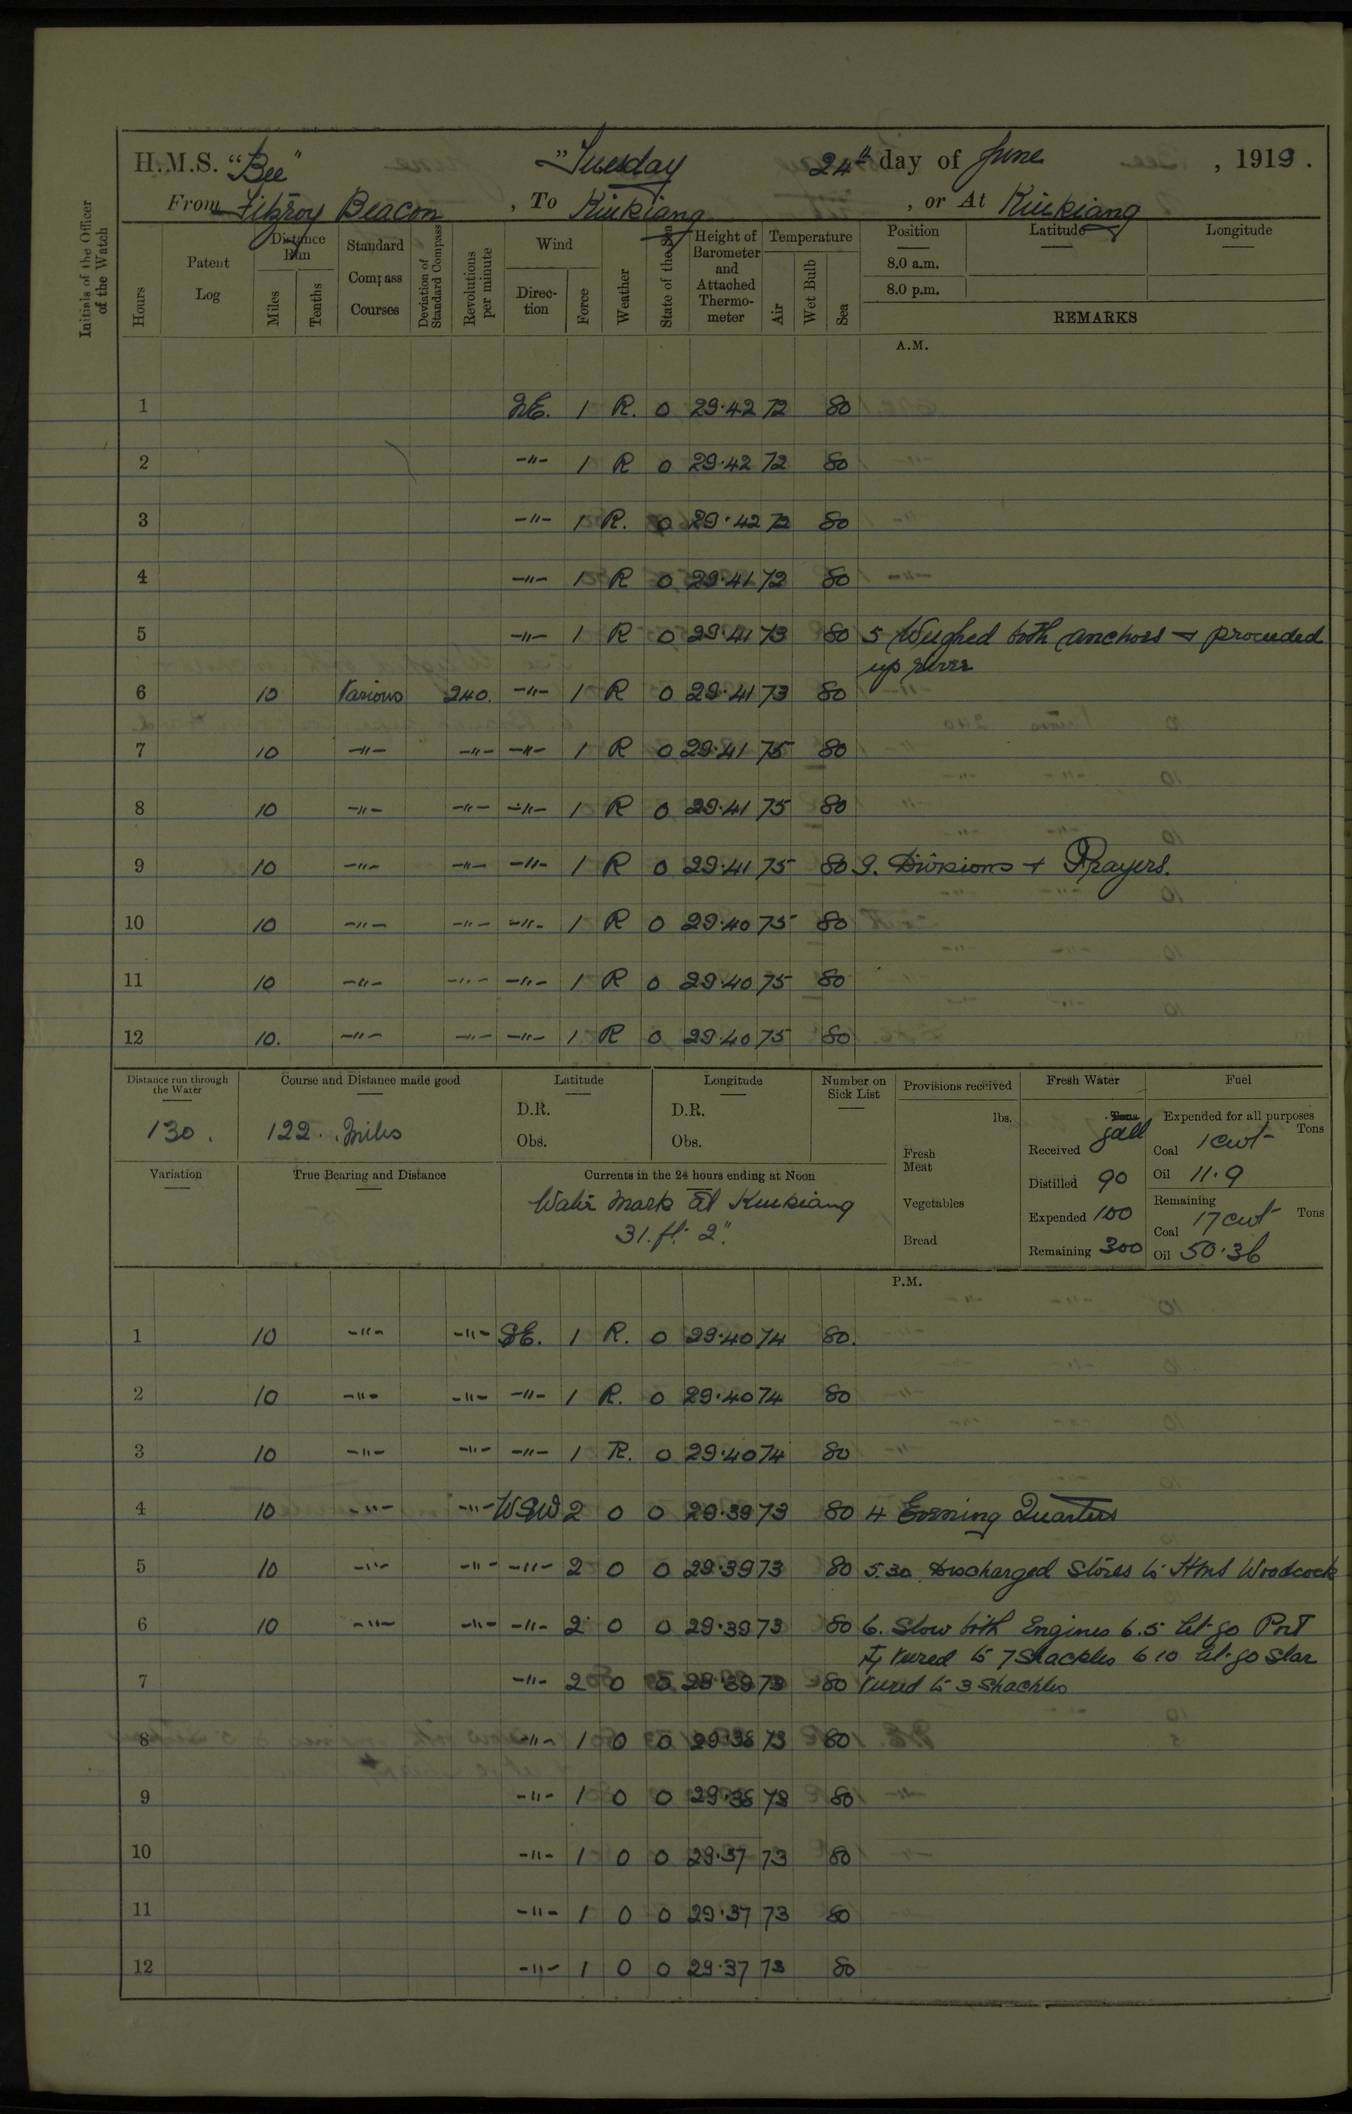 H.M.S. "Bee" Tuesday 24th day of June, 1919.
From Fitzroy Beacon, To Kiukiang, or At Kiukiang
Initials of the Officer of the Watch
Hours Patent Log Distance Run Miles Tenths Standard Compass Courses Deviation of Standard Compass Revolutions per minute Wind Direction Force Weather State of the Sea Height of Barometer and Attached Thermometer Temperature Air Wet Bulb Sea Position Latitude Longitude
8.0 a.m.
8.0 p.m.
REMARKS
A.M.
1 NE. 1 R. 0 29.42 72 80
2 -"- 1 R 0 29.42 72 80
3 -"- 1 R. 0 29.42 72 80
4 -"- 1 R 0 29.41 72 80
5 -"- 1 R 0 29.41 73 80 5 Weighed both anchors + proceeded
up river
6 10 Various 240. -"- 1 R 0 29.41 73 80
7 10 -"- -"- -"- 1 R 0 29.41 75 80
8 10 -"- -"- -"- 1 R 0 29.41 75 80
9 10 -"- -"- -"- 1 R 0 29.41 75 80 9. Divisions + Prayers.
10 10 -"- -"- -"- 1 R 0 29.40 75 80
11 10 -"- -"- -"- 1 R 0 29.40 75 80
12 10. -"- -"- -"- 1 R 0 29.40 75 80
Distance run through the Water Course and Distance made good Latitude Longitude Number on Sick List Provisions received Fresh Water Fuel
130. 122. Miles D.R. D.R. lbs. Tons gall Expended for all purposes
Obs. Obs. Fresh Meat Received Coal 1 cwt Tons
Variation True Bearing and Distance Currents in the 24 hours ending at Noon Distilled 90 Oil 11.9
Water Mark at Kiukiang Vegetables Expended 100 Remaining Coal 17 cwt Tons
31.ft. 2". Bread Remaining 300 Oil 50.36
P.M.
1 10 -"- -"- SE. 1 R. 0 29.40 74 80.
2 10 -"- -"- -"- 1 R. 0 29.40 74 80
3 10 -"- -"- -"- 1 R. 0 29.40 74 80
4 10 -"- -"- WSW 2 0 0 29.39 73 80 4 Evening Quarters
5 10 -"- -"- -"- 2 0 0 29.39 73 80 5.30 Discharged Stores to HMS Woodcock
6 10 -"- -"- -"- 2 0 0 29.39 73 80 6. Slow both Engines 6.5 let go Port
veered to 7 Shackles 6 10 let go Star
7 -"- 2 0 0 29.39 73 80 veered to 3 Shackles
8 -"- 1 0 0 29.38 73 80
9 -"- 1 0 0 29.38 73 80
10 -"- 1 0 0 29.37 73 80
11 -"- 1 0 0 29.37 73 80
12 -"- 1 0 0 29.37 73 80